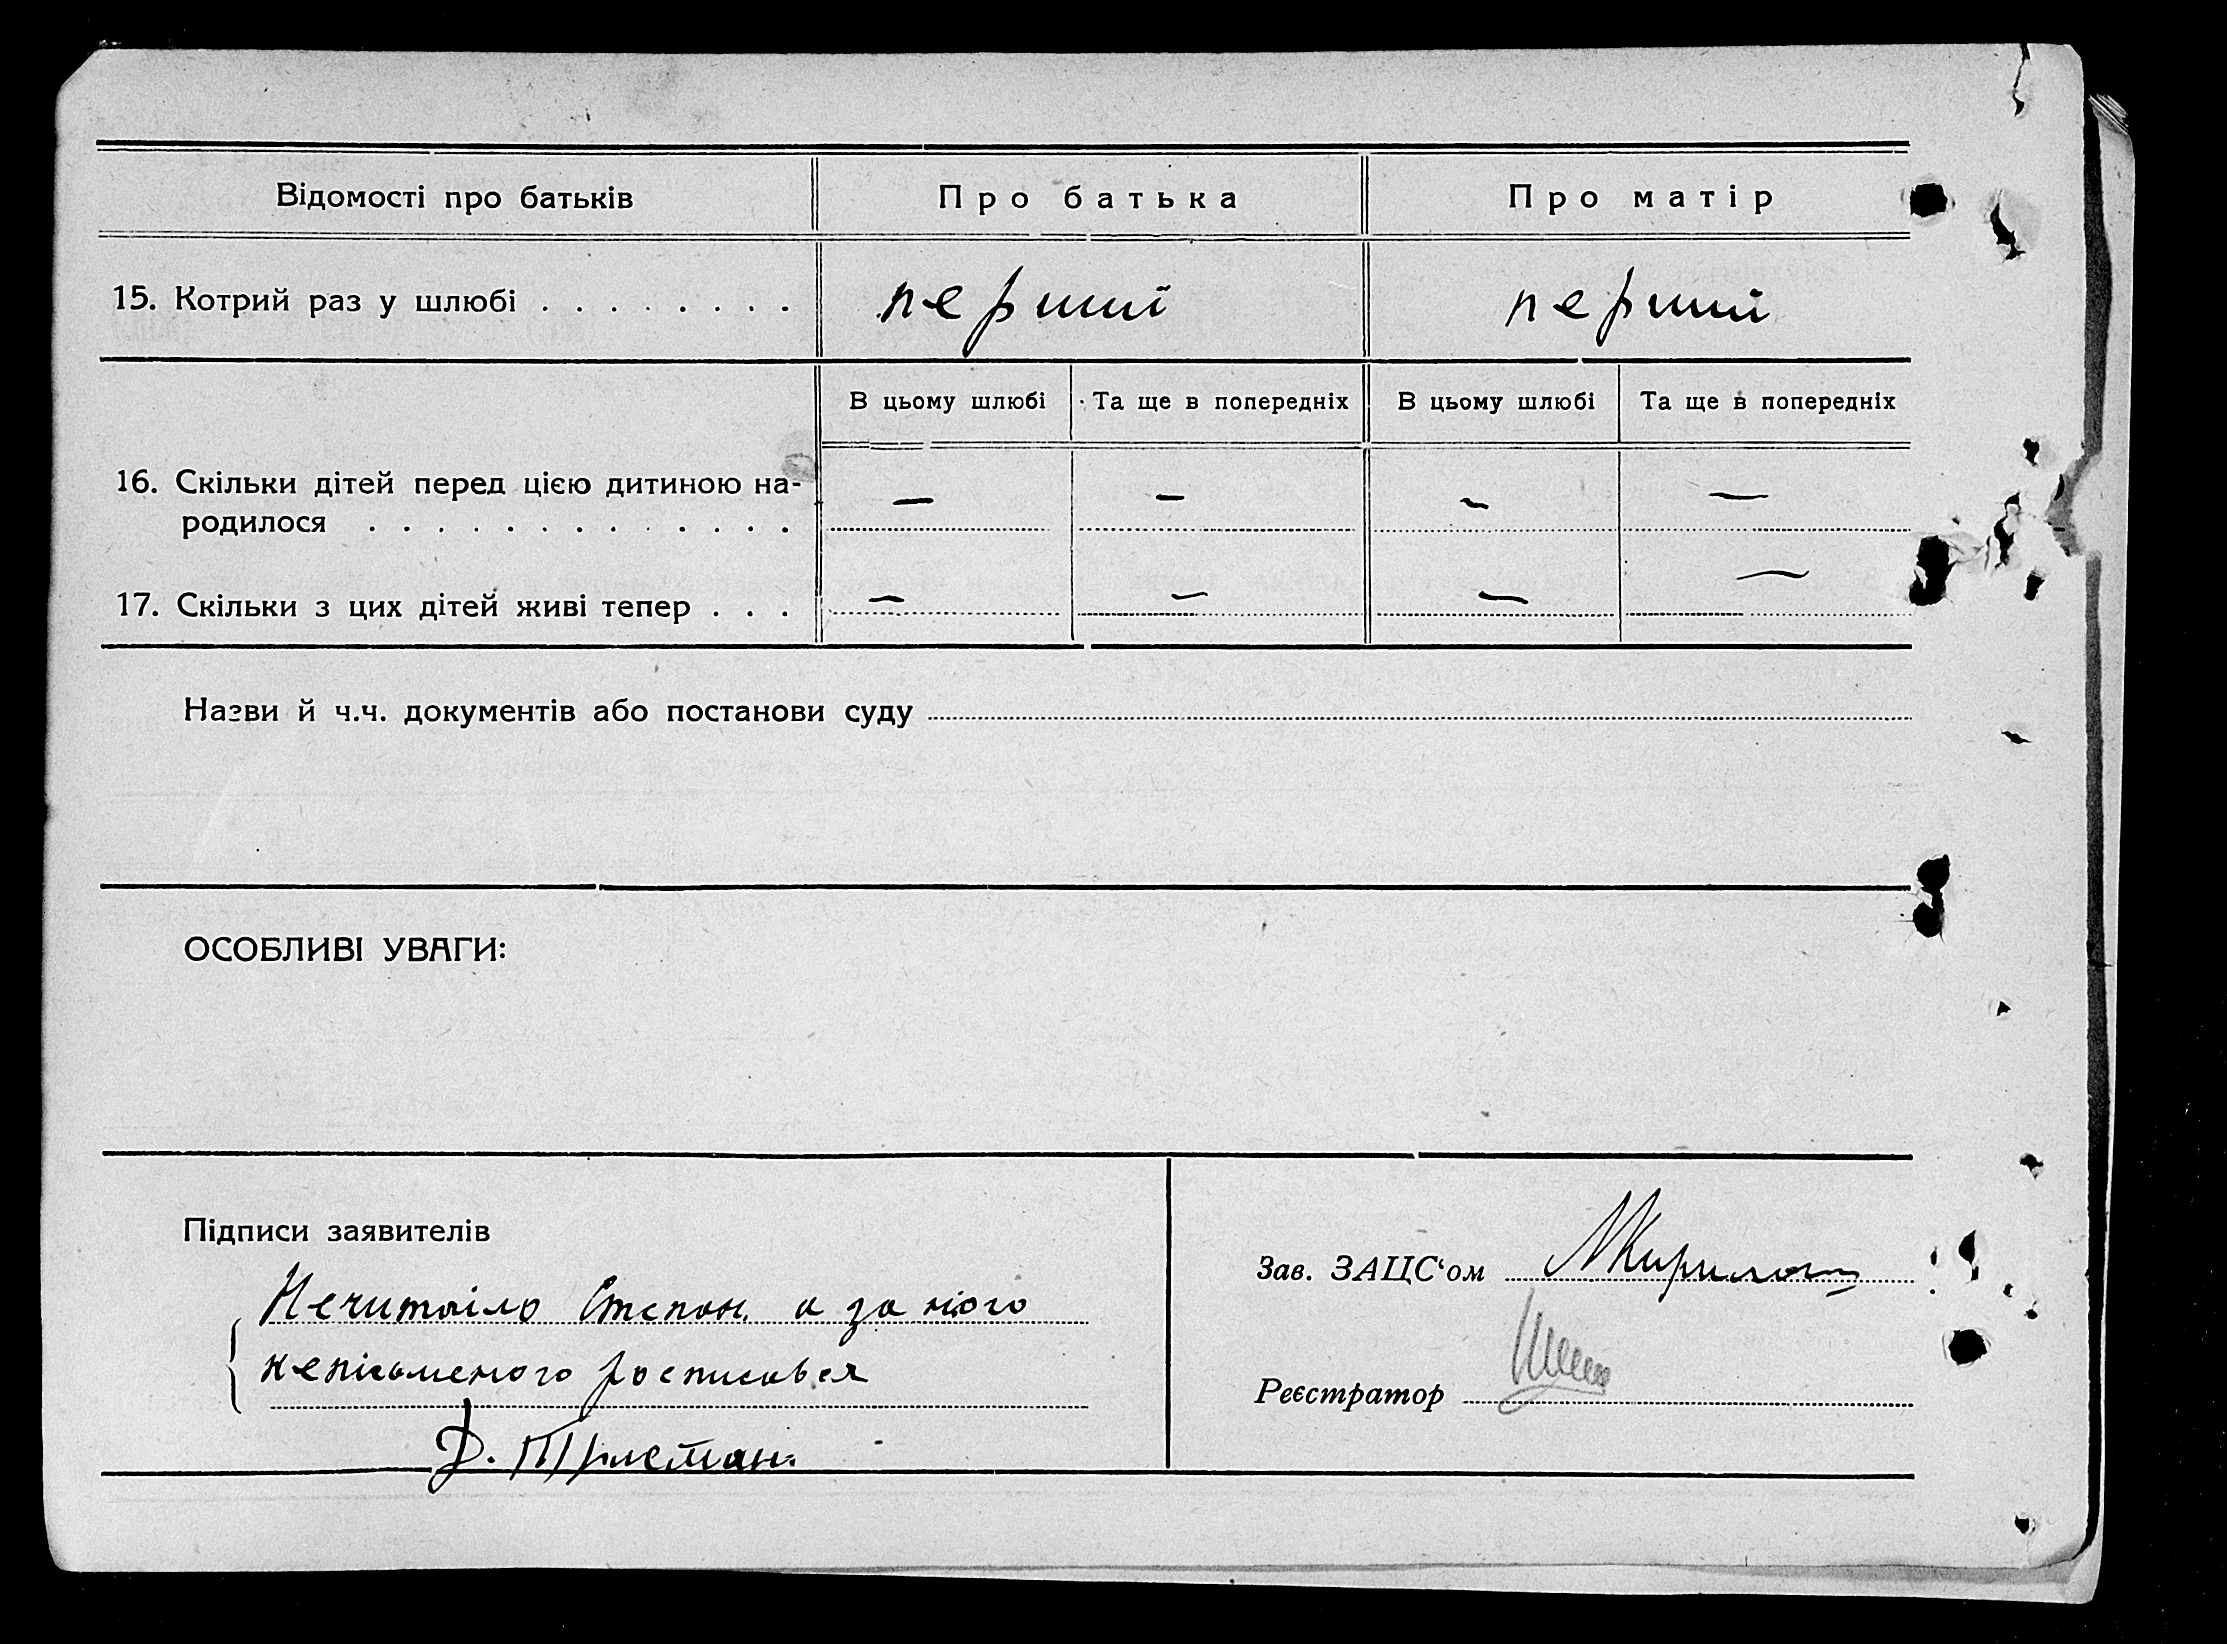 Відомості про батьків Про батька Про матір
15. Котрий раз у шлюбі . . . . . . . . перший перший
В цьому шлюбі Та ще в попередніх В цьому шлюбі Та ще в попередніх
16. Скільки дітей перед цією дитиною на-
родилося . . . . . . . . . . . . . — — — —
17. Скільки з цих дітей живі тепер . . . — — — —
Назви й ч.ч. документів або постанови суду
ОСОБЛИВІ УВАГИ:
Підписи заявителів
Нечитайло Степан а за нього
неписьменого росписався
Д.
Зав. ЗАЦС‘ом
Реєстратор